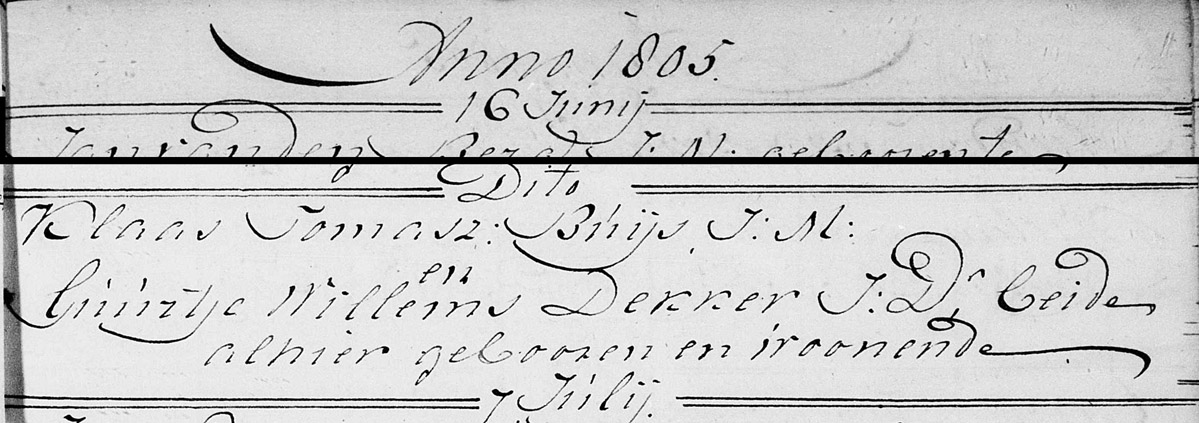 Anno 1805.
16 Junij
Jan van den Berg J: M: gebooren te
Dito
Klaas Tomasz: Buijs J: M:
en
Guurtje Willems Dekker J: D: beide
alhier gebooren en woonende
7 Julij.